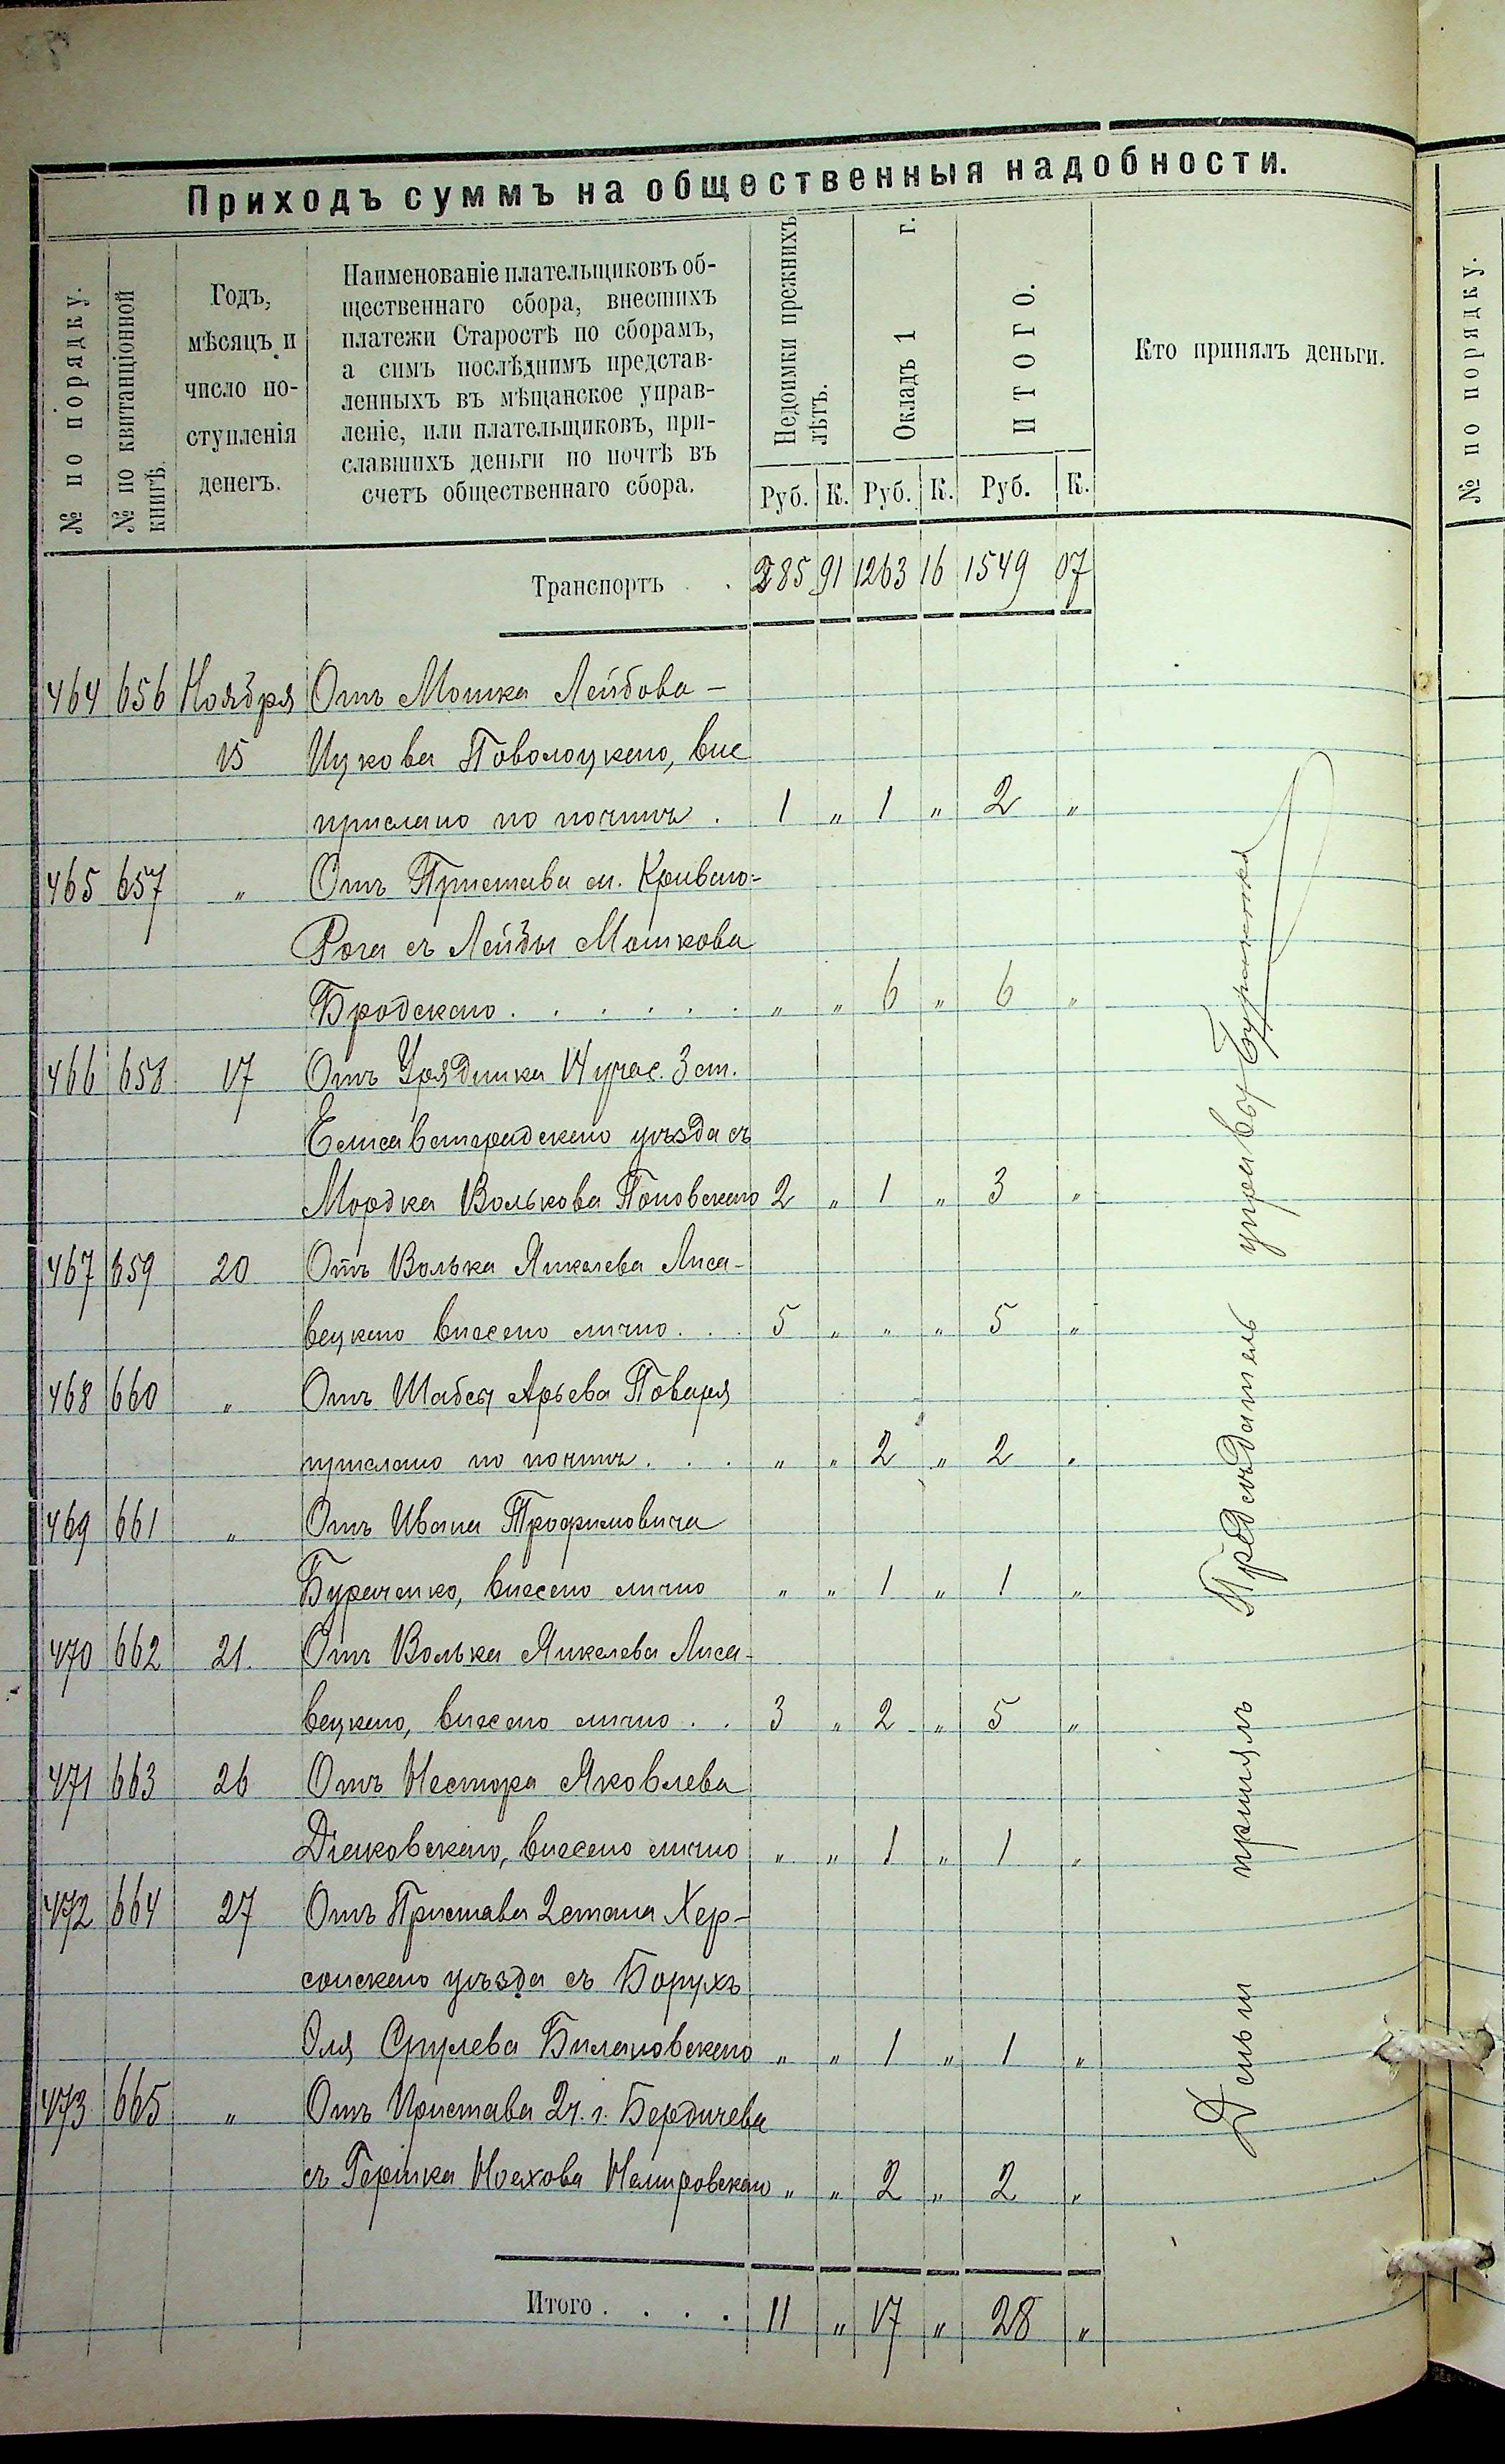 Приходъ суммъ на общественныя надобности.
№ по порядку.
№ по квитанціонной
книгѣ.
Годъ,
мѣсяцъ и
число по-
ступленія
денегъ.
Наименованіе плательщиковъ об-
щественнаго сбора, внесшихъ
платежи Старостѣ по сборамъ,
а симъ послѣднимъ представ-
ленныхъ въ мѣщанское управ-
леніе, или плательщиковъ, при-
славшихъ деньги по почтѣ въ
счетъ общественнаго сбора.
Недоимки прежнихъ
лѣтъ.
Окладъ 1 г.
ИТОГО.
Кто принялъ деньги.
Руб. К. Руб. К. Руб. К.
Транспортъ . . 285 91 1263 16 1549 07
464 656 Ноября Отъ Мошка Лейбова-
15 Ицкова Поволоцкаго,
прислано по почтѣ . 1 „ 1 „ 2 „
465 657 „ Отъ Пристава м. Криваго-
Рога съ Лейзы Мошкова
Бродскаго . . . . . . „ „ 6 „ 6 „
466 658 17 Отъ Урядника 14 учас. 3 ст.
Елисаветградскаго уѣзда съ
Мордка Волькова Поповскаго 2 „ 1 „ 3 „
467 659 20 Отъ Волька Янкелева Лиса-
вецкаго внесено лично . . . 5 „ „ „ 5 „
468 660 „ Отъ Шабсы Арьева Поваря
прислано по почтѣ . . . „ „ 2 „ 2 „
469 661 „ Отъ Ивана Трофимовича
Бураченко, внесено лично „ „ 1 „ 1 „
470 662 21. Отъ Волька Янкелева Лиса-
вецкаго, внесено лично . . 3 „ 2 „ 5 „
471 663 26 Отъ Нестора Яковлева
Дьяковскаго, внесено лично „ „ 1 „ 1 „
472 664 27 Отъ Пристава 2 стана Хер-
сонскаго уѣзда съ Борухъ
Эля Срулева Билановскаго „ „ 1 „ 1 „
473 665 „ Отъ Пристава 2 ч. г. Бердичева
съ Гершка Ноехова Немировскаго „ „ 2 „ 2 „
Итого . . . . 11 „ 17 „ 28 „
Деньги принялъ Предсѣдатель управы
№ по порядку.